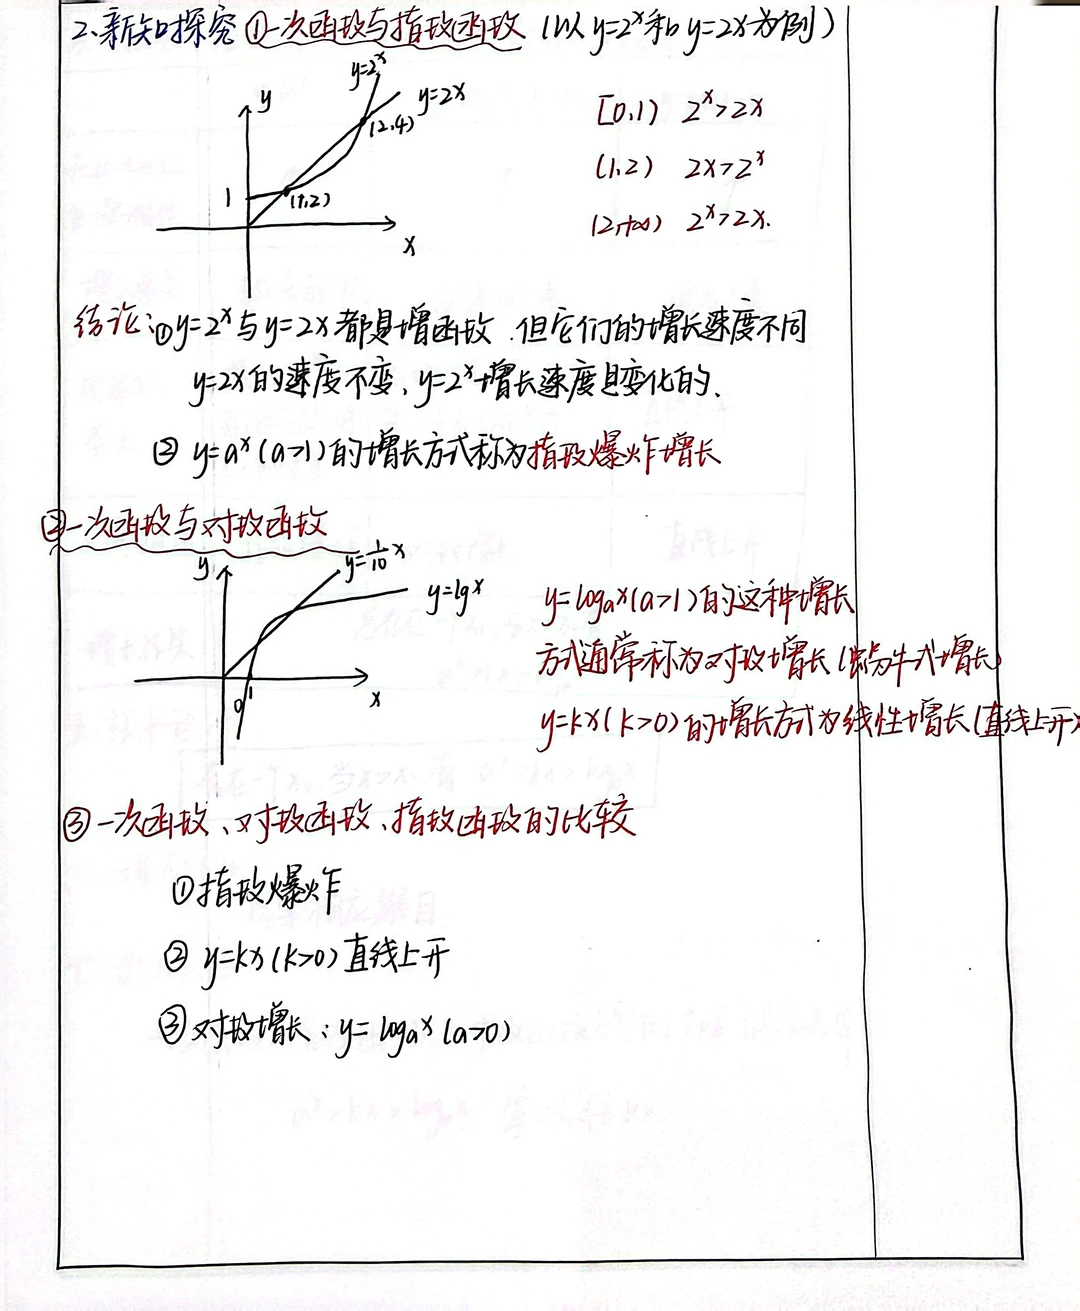 2、新知探究 ①一次函数与指数函数（以y=2^x和y=2x为例）
y=2^x
y=2x
y
(2,4)
1
(1,2)
x
[0,1) 2^x>2x
(1,2) 2x>2^x
(2,+∞) 2^x>2x.
结论:①y=2^x与y=2x都是增函数.但它们的增长速度不同
y=2x的速度不变、y=2^x增长速度是变化的、
② y=a^x(a>1)的增长方式称为指数爆炸增长
②一次函数与对数函数
y=1/10 x
y
y=lgx
0
1
x
y=logax(a>1)的这种增长
方式通常称为对数增长(蜗牛式增长)
y=kx(k>0)的增长方式为线性增长(直线上升)
③一次函数、对数函数、指数函数的比较
①指数爆炸
② y=kx(k>0)直线上升
③对数增长:y=logax(a>0)